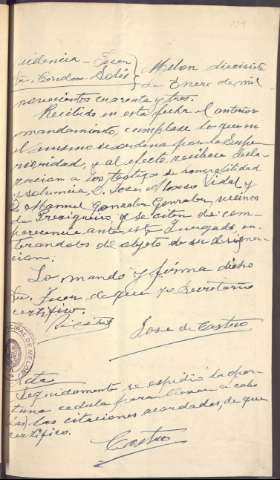 Providencia - Juez
Sr. Cordero Solís } Melon diecisiete
de Enero de mil
novecientos cuarenta y tres.
Recibido en esta fecha el anterior
mandamiento, cumplase lo que en
el mismo se ordena por la Superioridad, y al efecto recibase declaracion a los testigos de
D. Jose Vidal y
D. Manuel Gonzalez Gonzalez, vecinos
de y se citen de comparecencia ante este Juzgado, enterandolos del objeto de su
Lo mando y firma dicho
Sr. Juez, de que yo Secretario
certifico.
Jose de Castro
Nota
Seguidamente se expidió la oportuna cedula para llevar a cabo
las citaciones acordadas, de que
certifico.
Castro